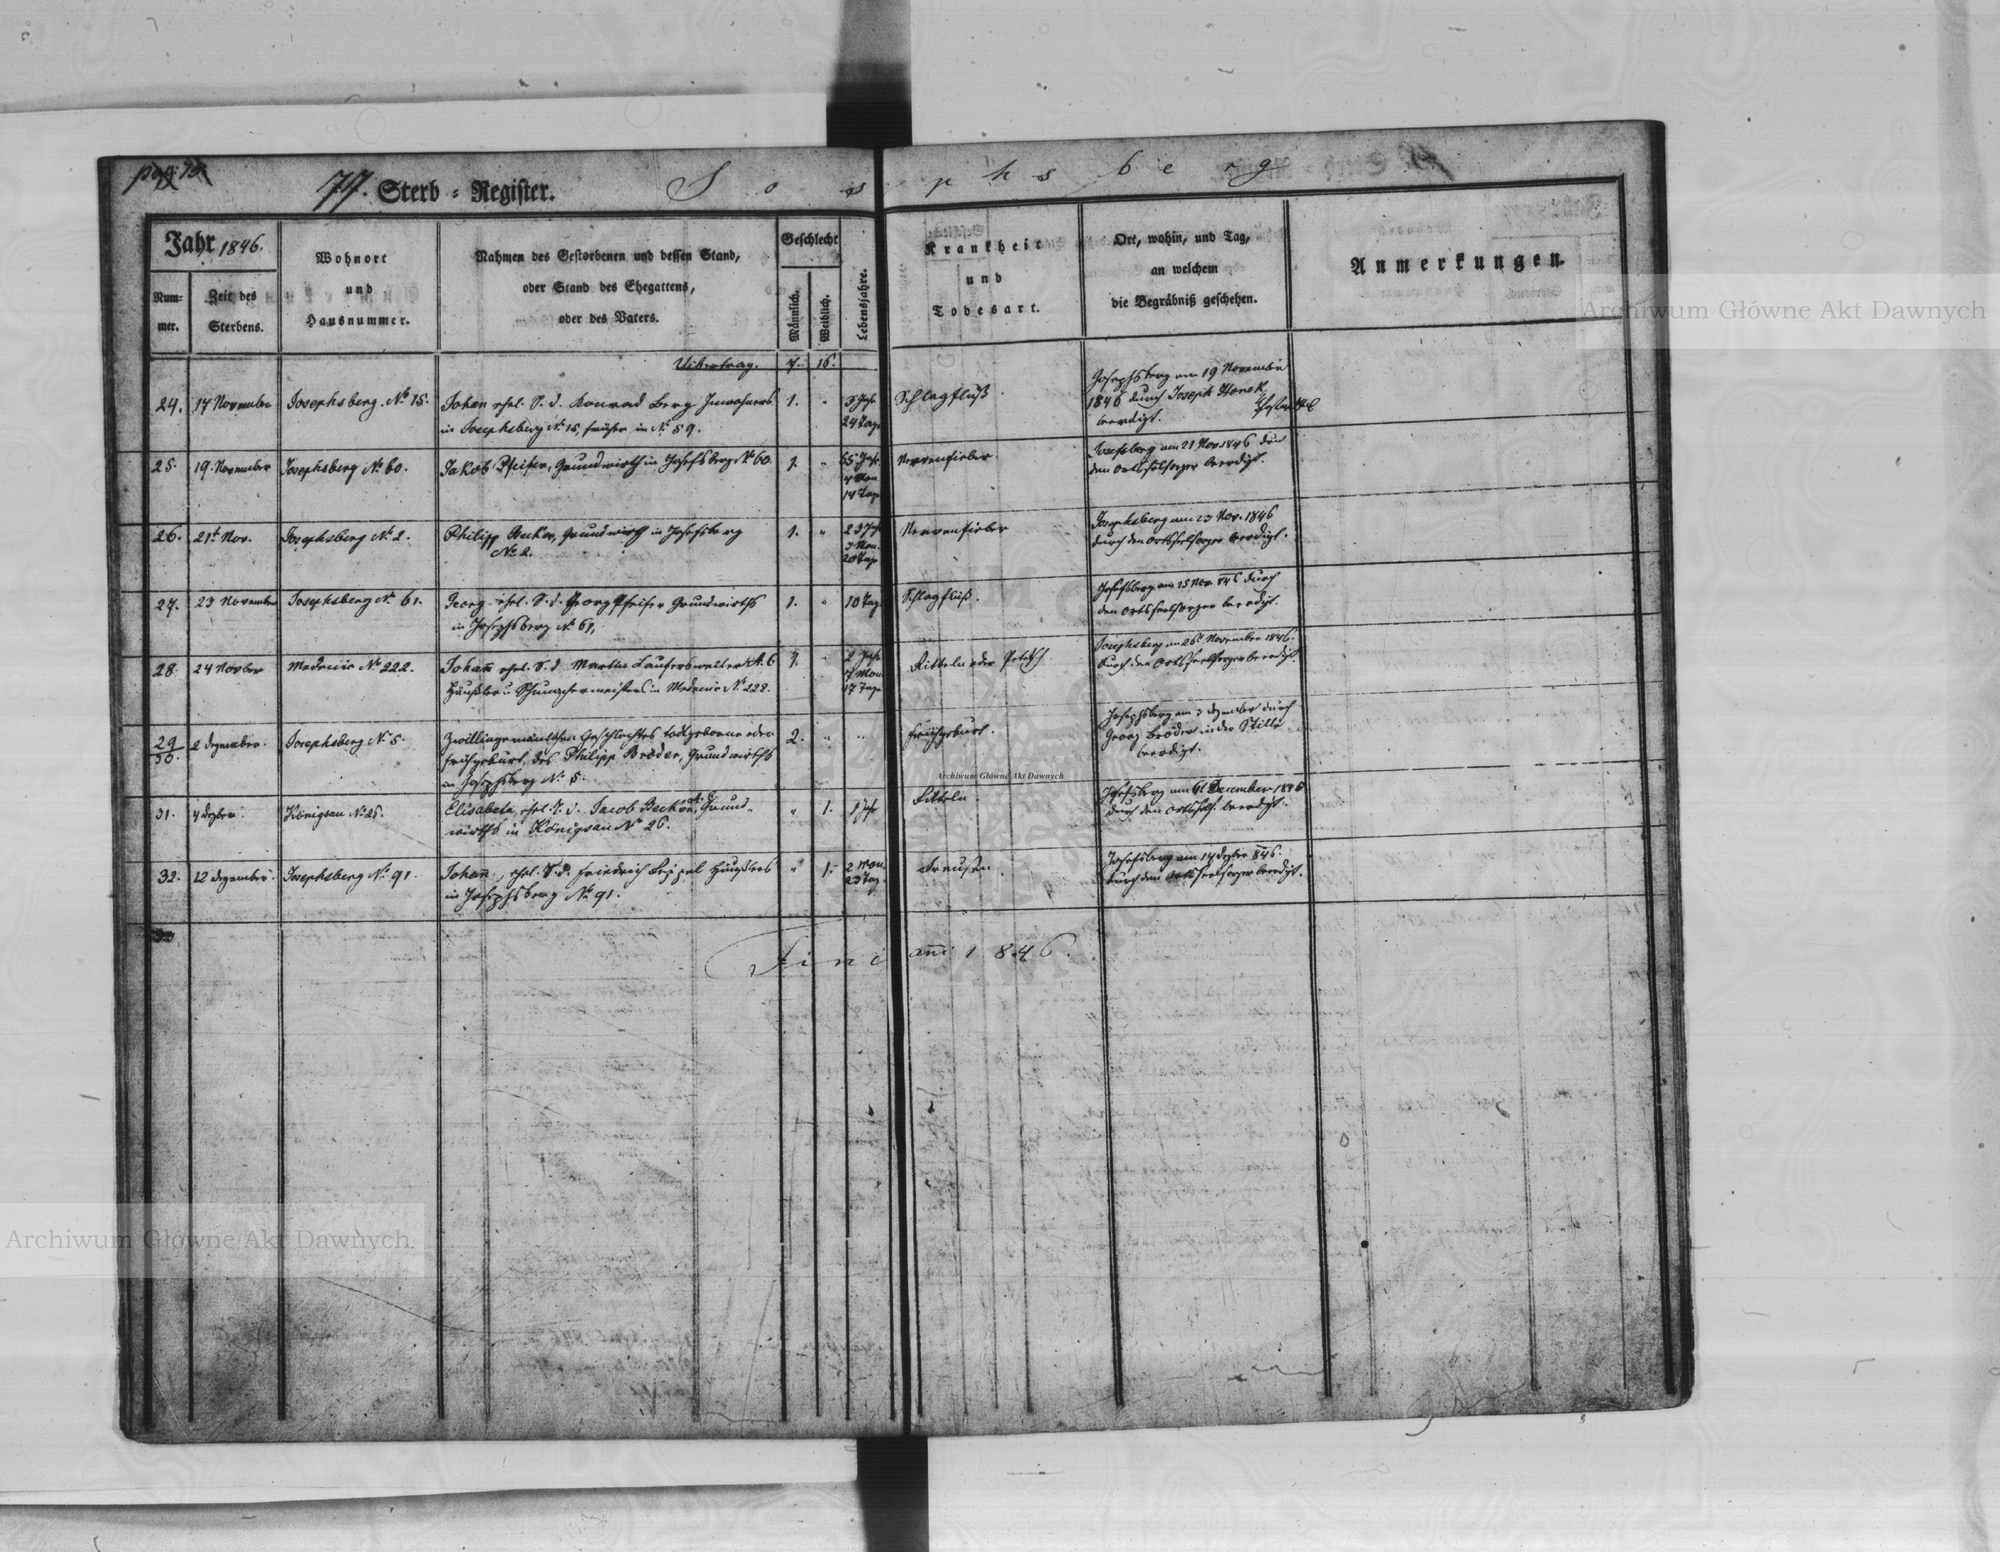 77. Sterb-Register. Josephsberg
Jahr 1846.
Nummer.
Zeit des Sterbens.
Wohnort
und
Hausnummer.
Nahmen des Gestorbenen und dessen Stand,
oder Stand des Ehegatten,
oder des Vaters.
Geschlecht
Männlich.
Weiblich.
Lebensjahre.
Krankheit
und
Todesart.
Ort, wohin, und Tag,
an welchem
die Begräbniß geschehen.
Anmerkungen.
Uibertrag. 7. 16.
24. 17 November Josephsberg. No 15. Johan ehel. S. d. Konrad Berg Inwohners 1. „ 3 Jah. Schlagfluß
in Josephsberg No 15, früher in No 59. 24 Tage
Josephsberg am 19 November
1846 durch Joseph
beerdigt.
25. 19. November Josephsberg No 60. Jakob Pfeifer, Grundwirth in Josefsberg No 60. 1. „ 55 Jah. Nervenfieber
4 Mon.
14 Tag
Josefsberg am 21 Nov 1846 durch
den Ortsseelsorger beerdigt.
26. 21t Nov. Josephsberg No 2. Philipp Becker, Grundwirth in Josefsberg 1. „ 23 Jah. Nervenfieber
No 2. 3 Mon.
20 Tag
Josephsberg am 23 Nov. 1846
durch den Ortsseelsorger beerdigt.
27. 23 November Josephsberg No 61. Georg ehel. S. d. Georg Pfeifer Grundwirths 1. „ 10 Tag Schlagfluß.
in Josephsberg No 61,
Josefsberg am 25 Nov. 846 durch
den Ortsseelsorger beerdigt.
28. 24 Novber Medenice No 222. Johann ehel. S. d. Martin Laufersweiler A. C. 1. „ 2 Jah.
Häußler u. in Medenice No 222. 7 Mon.
17 Tag
Josephsberg am 26t November 1846.
durch den Ortsseelsorger beerdigt.
29/30. 2 Dezember. Josephsberg No 5. Zwillinge männlichen Geschlechtes todtgeborene oder 2. „ „ Frühgeburt.
Frühgeburt, des Philipp Bröder, Grundwirths
in Josephsberg No 5.
Josephsberg am 3 Dezember durch
Georg Bröder in der Stille
beerdigt.
31. 4 Dezber. Königsau No 26. Elisabeta, ehel. T. d. Jacob Becker, A. C. Grund- „ 1. 1 Jah.
wirths in Königsau No 26.
Josefsberg am 6t December 1846
durch den Ortsseels. beerdigt.
32. 12 Dezember. Josephsberg No 91. Johann, ehel. S. d. Friedrich Häußlers „ 1. 2 Mon.
in Josephsberg No 91. 23 Tag.
Josefsberg am 14 Dezber 846.
durch den Ortsseelsorger beerdigt.
Fini anni 1846.
Archiwum Główne Akt Dawnych
Archiwum Główne Akt Dawnych
Archiwum Główne Akt Dawnych